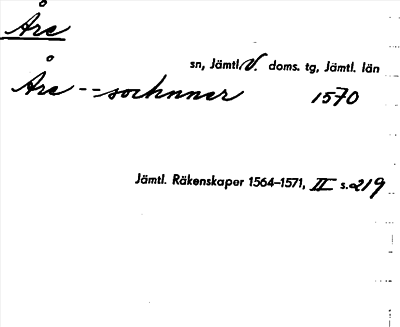 Åre
sn, Jämtl. V. doms. tg, Jämtl. län
Åre -- sochnner 1570
Jämtl. Räkenskaper 1564–1571, II s. 219